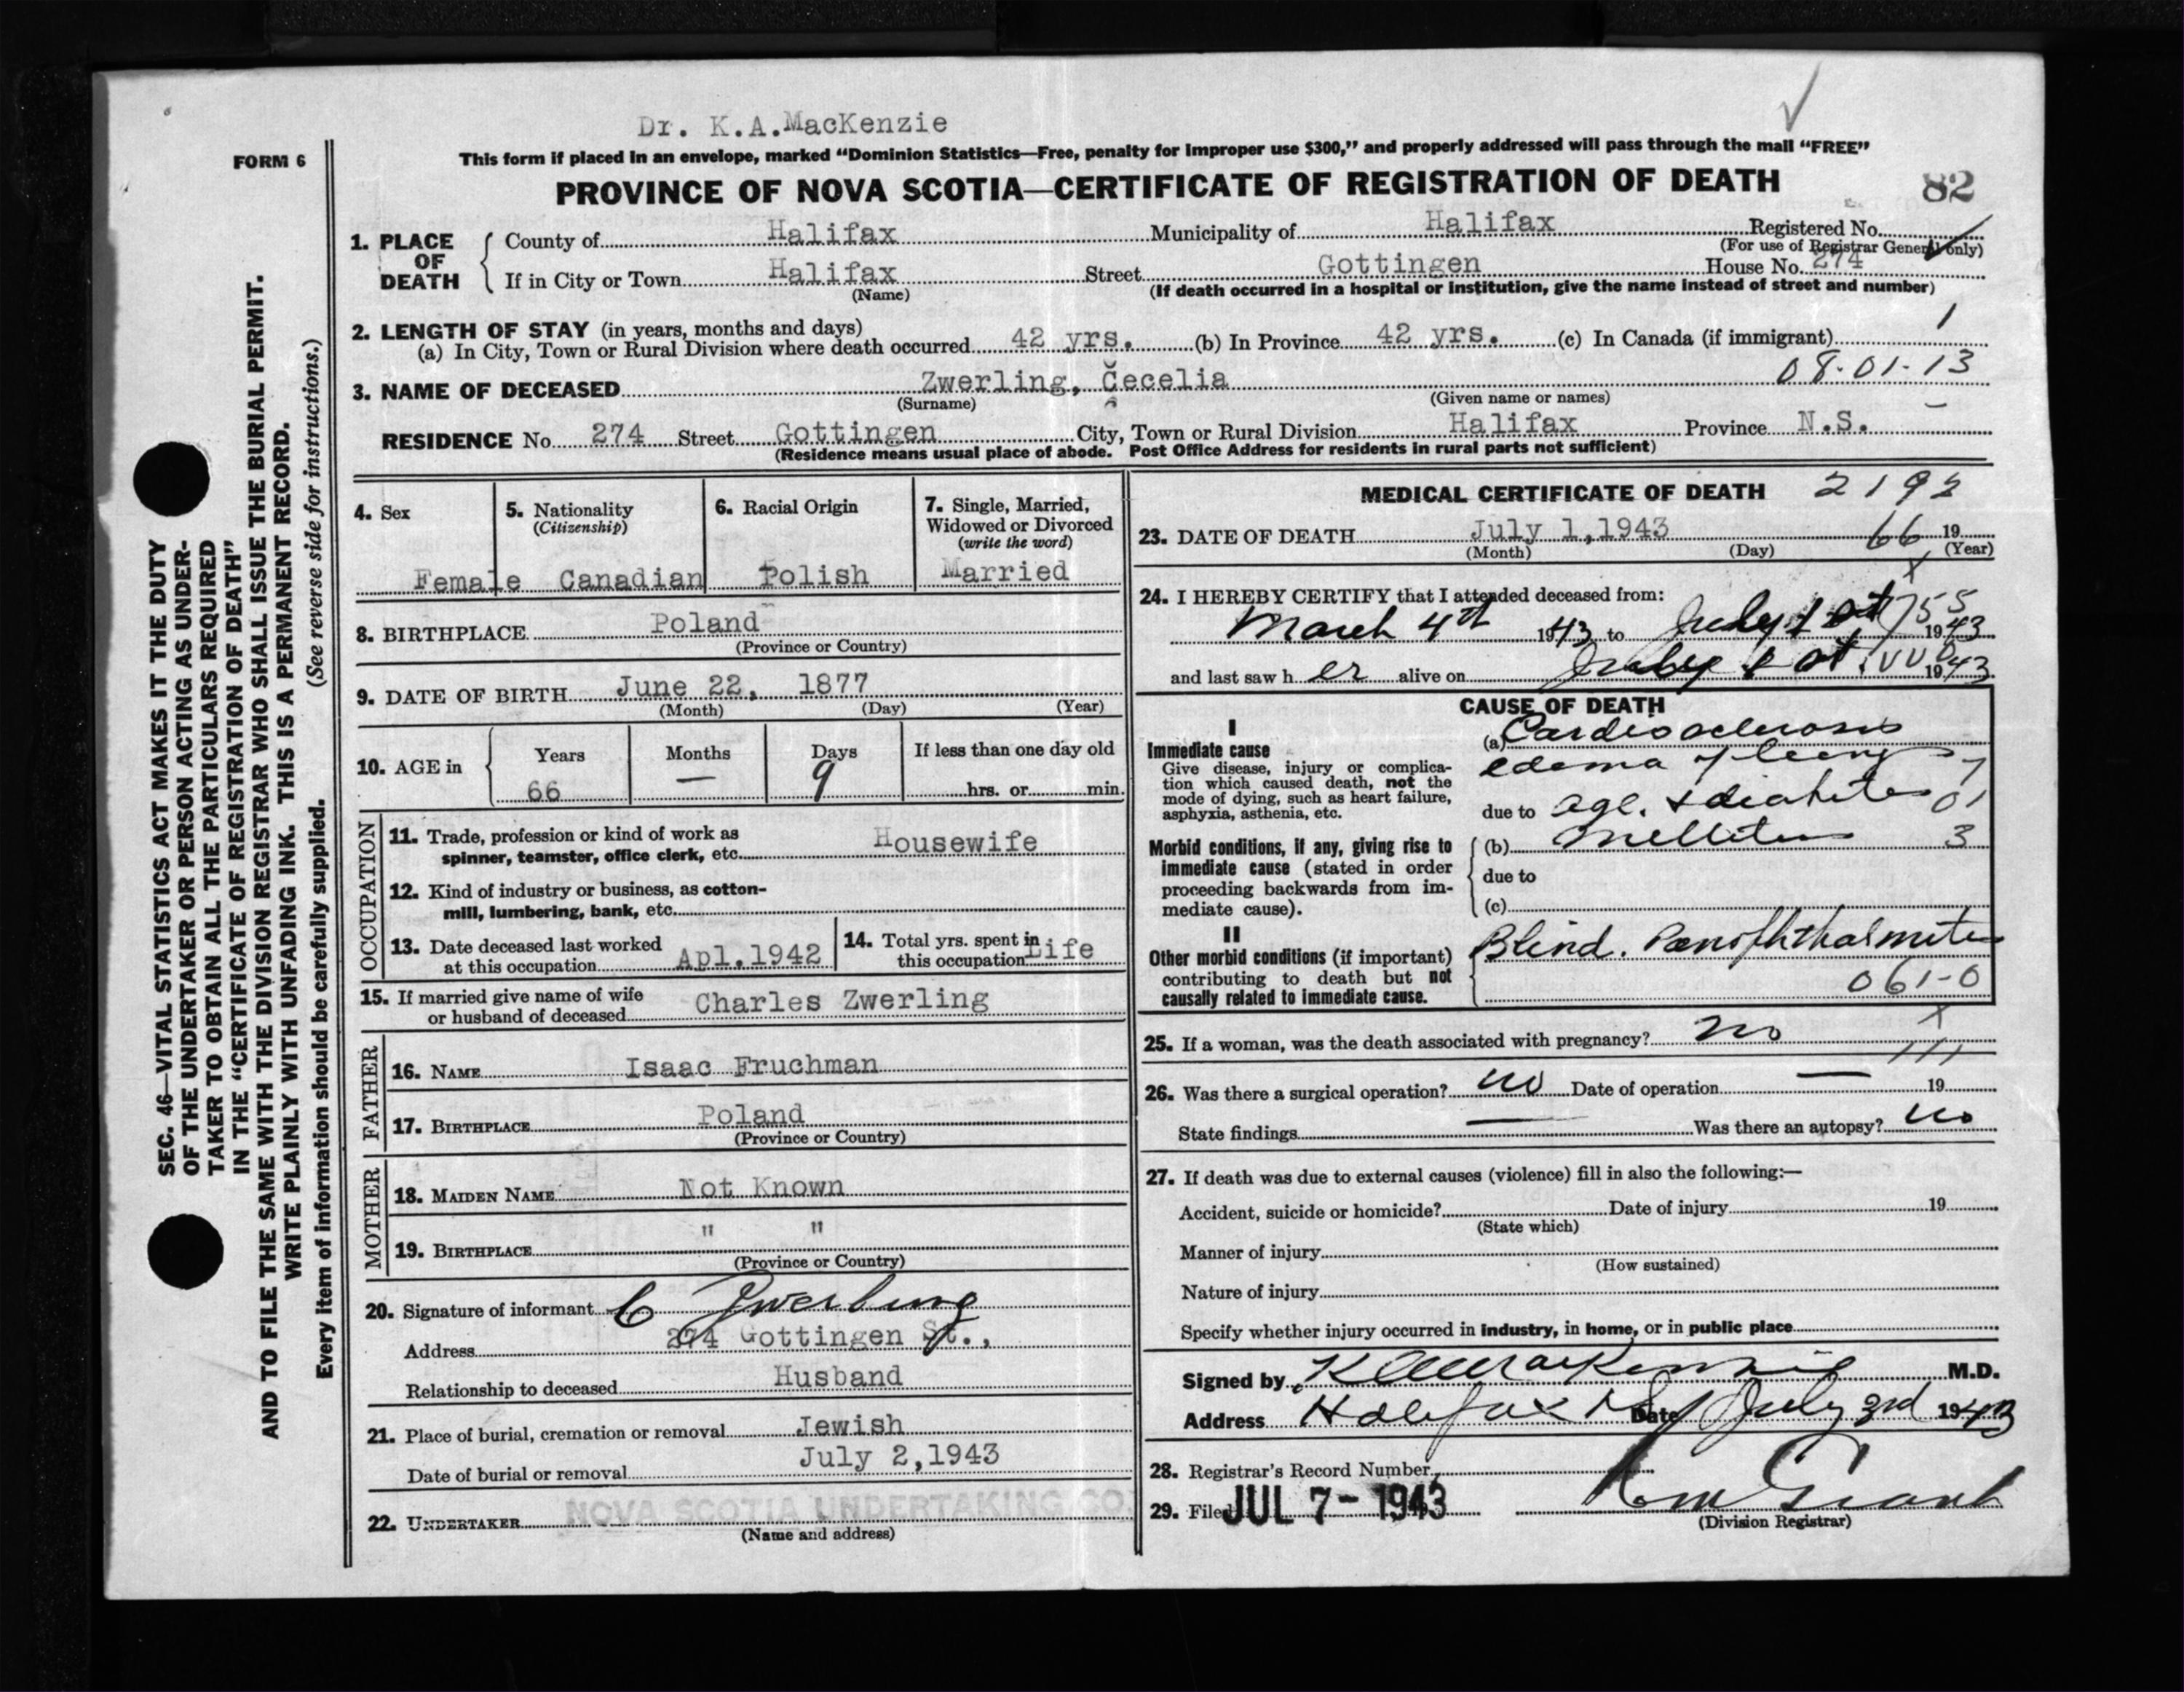 Dr. K.A.MacKenzie
FORM 6
This form if placed in an envelope, marked “Dominion Statistics—Free, penalty for improper use $300,” and properly addressed will pass through the mail “FREE”
PROVINCE OF NOVA SCOTIA—CERTIFICATE OF REGISTRATION OF DEATH
82
1. PLACE OF DEATH
County of Halifax Municipality of Halifax Registered No.
(For use of Registrar General only)
If in City or Town Halifax Street Gottingen House No. 274
(Name) (If death occurred in a hospital or institution, give the name instead of street and number)
2. LENGTH OF STAY (in years, months and days)
(a) In City, Town or Rural Division where death occurred 42 yrs. (b) In Province 42 yrs. (c) In Canada (if immigrant) 1
08-01-13
3. NAME OF DECEASED Zwerling, Cecelia
(Surname) (Given name or names)
RESIDENCE No. 274 Street Gottingen City, Town or Rural Division Halifax Province N.S.
(Residence means usual place of abode. Post Office Address for residents in rural parts not sufficient)
SEC. 46—VITAL STATISTICS ACT MAKES IT THE DUTY
OF THE UNDERTAKER OR PERSON ACTING AS UNDER-
TAKER TO OBTAIN ALL THE PARTICULARS REQUIRED
IN THE “CERTIFICATE OF REGISTRATION OF DEATH”
AND TO FILE THE SAME WITH THE DIVISION REGISTRAR WHO SHALL ISSUE THE BURIAL PERMIT.
WRITE PLAINLY WITH UNFADING INK. THIS IS A PERMANENT RECORD.
Every item of information should be carefully supplied. (See reverse side for instructions.)
4. Sex
Female
5. Nationality
(Citizenship)
Canadian
6. Racial Origin
Polish
7. Single, Married,
Widowed or Divorced
(write the word)
Married
8. BIRTHPLACE Poland
(Province or Country)
9. DATE OF BIRTH June 22, 1877
(Month) (Day) (Year)
10. AGE in Years Months Days If less than one day old
66 — 9 hrs. or min.
OCCUPATION
11. Trade, profession or kind of work as
spinner, teamster, office clerk, etc. Housewife
12. Kind of industry or business, as cotton-
mill, lumbering, bank, etc.
13. Date deceased last worked
at this occupation Apl.1942
14. Total yrs. spent in
this occupation Life
15. If married give name of wife
or husband of deceased Charles Zwerling
FATHER
16. NAME Isaac Fruchman
17. BIRTHPLACE Poland
(Province or Country)
MOTHER
18. MAIDEN NAME Not Known
19. BIRTHPLACE " "
(Province or Country)
20. Signature of informant C Zwerling
Address 274 Gottingen St.,
Relationship to deceased Husband
21. Place of burial, cremation or removal Jewish
Date of burial or removal July 2,1943
22. UNDERTAKER NOVA SCOTIA UNDERTAKING CO.
(Name and address)
MEDICAL CERTIFICATE OF DEATH
23. DATE OF DEATH July 1,1943 66 19
(Month) (Day) (Year)
24. I HEREBY CERTIFY that I attended deceased from:
March 4th 1943 to July 1st 1943
and last saw her alive on July 1st 1943
CAUSE OF DEATH
I
Immediate cause
Give disease, injury or complica-
tion which caused death, not the
mode of dying, such as heart failure,
asphyxia, asthenia, etc.
(a) Cardiosclerosis
edema of lung
due to age. & diabetes
Morbid conditions, if any, giving rise to
immediate cause (stated in order
proceeding backwards from im-
mediate cause).
(b) Mellitus 3
due to
(c)
II
Other morbid conditions (if important)
contributing to death but not
causally related to immediate cause.
Blind. Panophthalmitis
061-0
25. If a woman, was the death associated with pregnancy? no
26. Was there a surgical operation? no Date of operation — 19
State findings — Was there an autopsy? no
27. If death was due to external causes (violence) fill in also the following:—
Accident, suicide or homicide? Date of injury 19
(State which)
Manner of injury
(How sustained)
Nature of injury
Specify whether injury occurred in industry, in home, or in public place
Signed by K A MacKenzie M.D.
Address Halifax NS Date July 3rd 1943
28. Registrar's Record Number
29. Filed JUL 7- 1943
(Division Registrar)